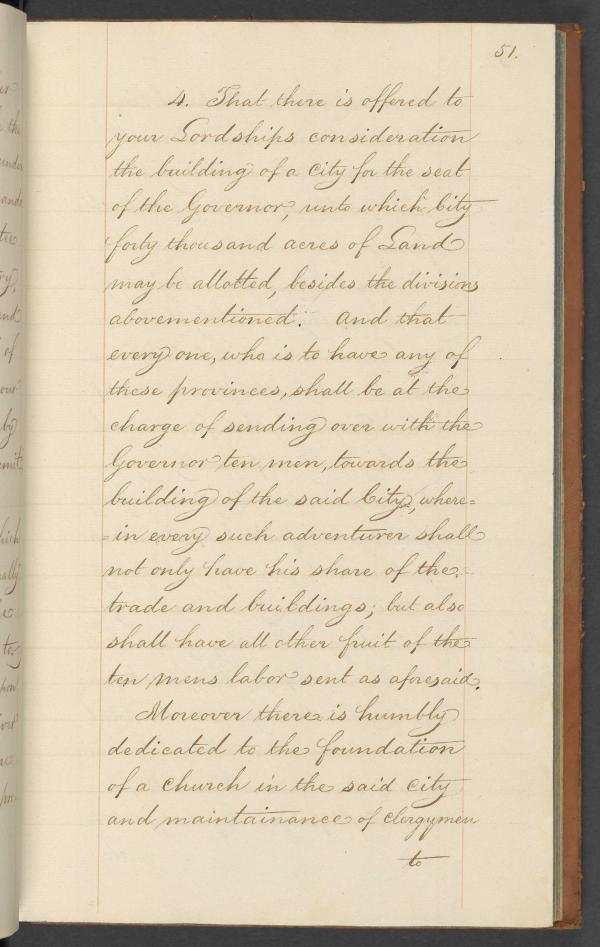 51.
4. That there is offered to
your Lordships consideration
the building of a City for the seat
of the Governor, unto which City
forty thousand acres of Land
may be allotted, besides the divisions
abovementioned. And that
every one, who is to have any of
these provinces, shall be at the
charge of sending over with the
Governor ten men, towards the
building of the said City, where=
=in every such adventurer shall
not only have his share of the
trade and buildings; but also
shall have all other fruit of the
ten mens labor sent as aforesaid.
Moreover there is humbly
dedicated to the foundation
of a church in the said City
and maintainance of Clergymen
to